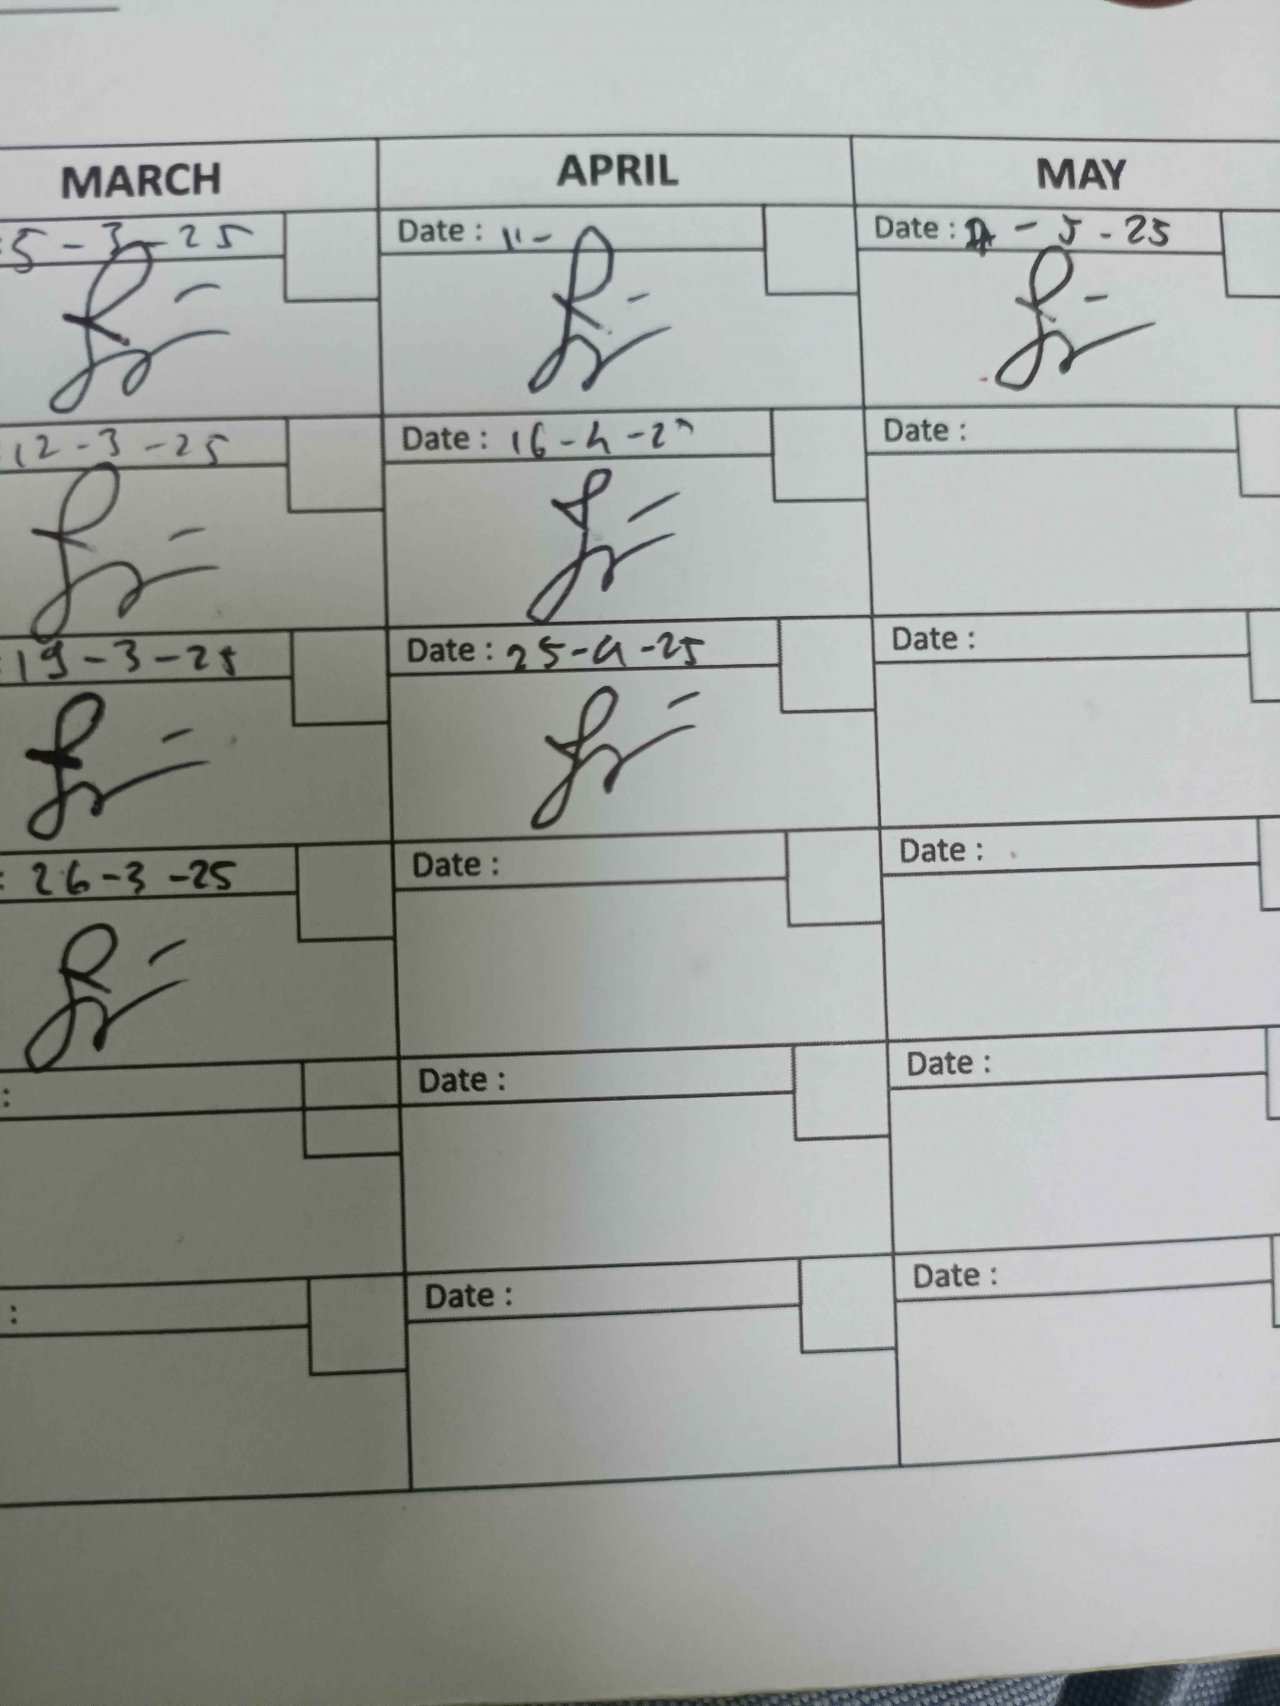 MARCH APRIL MAY
: 5-3-25 Date : 11- Date : - 5 - 25
: 12-3-25 Date : 16-4-2
: 19-3-25 Date : 25-4-25 Date :
Date :
: 26-3-25 Date : Date :
: Date : Date :
: Date : Date :